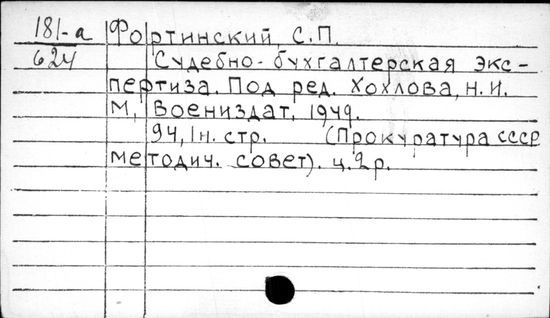 181-а Фортинский, С.П.
624 Судебно-бухгалтерская экс-
пертиза. Под ред. Хохлова, Н.И.
М, Воениздат, 1949.
94, 1н. стр. (Прокуратура СССР
методич. совет). ц. 2р.